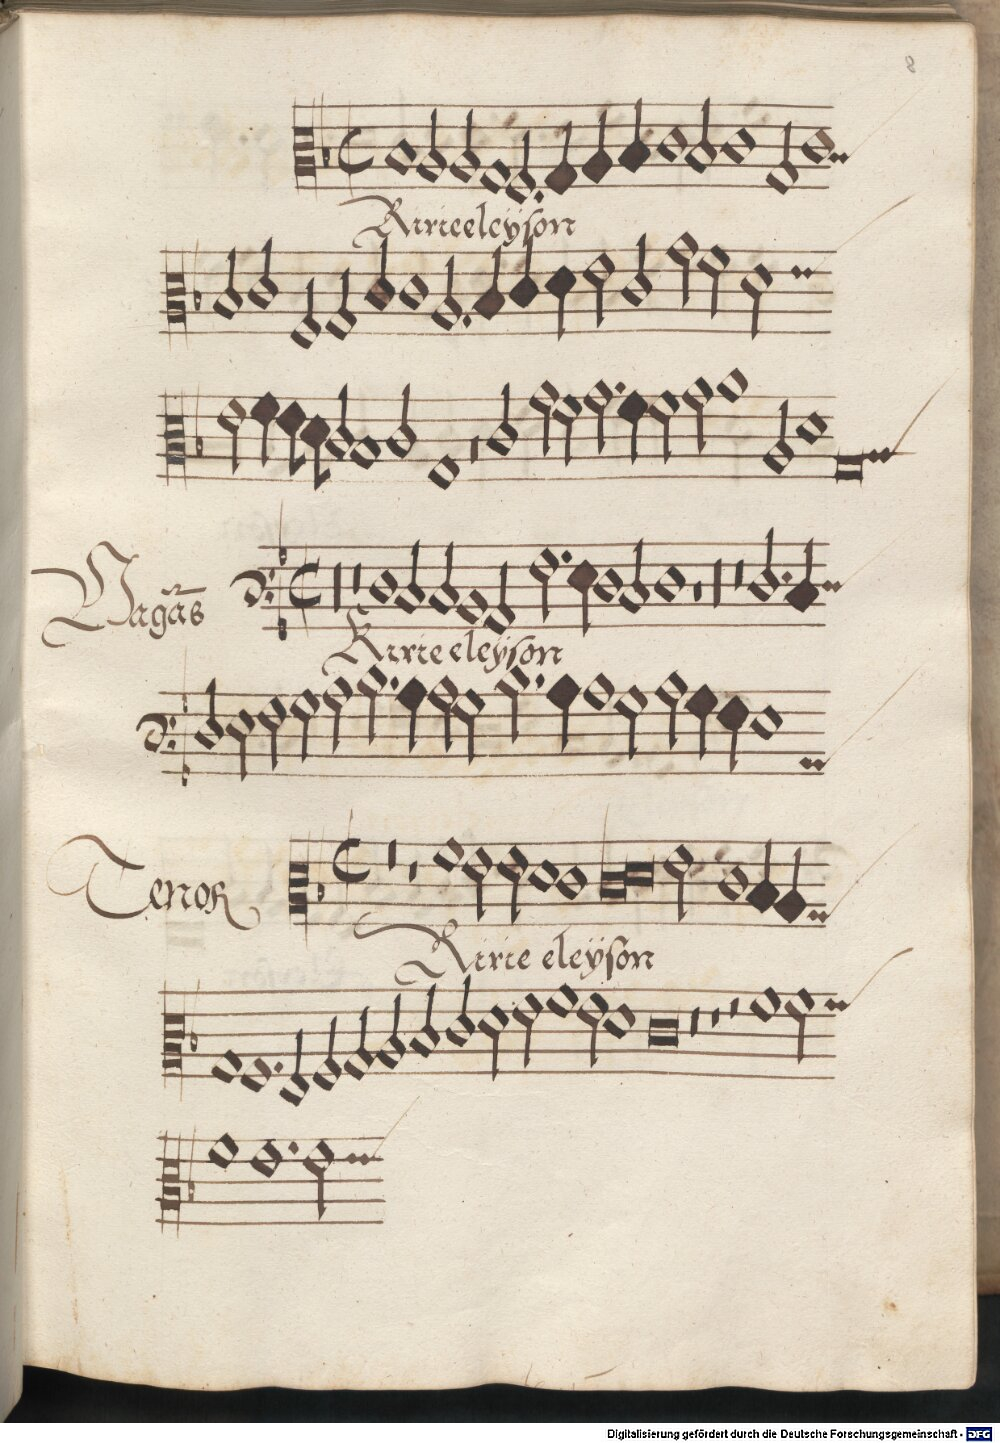 8
Kirieeleÿson
Vagãs
Kirie eleÿson
Tenor
Kirie eleÿson
Digitalisierung gefördert durch die Deutsche Forschungsgemeinschaft - DFG